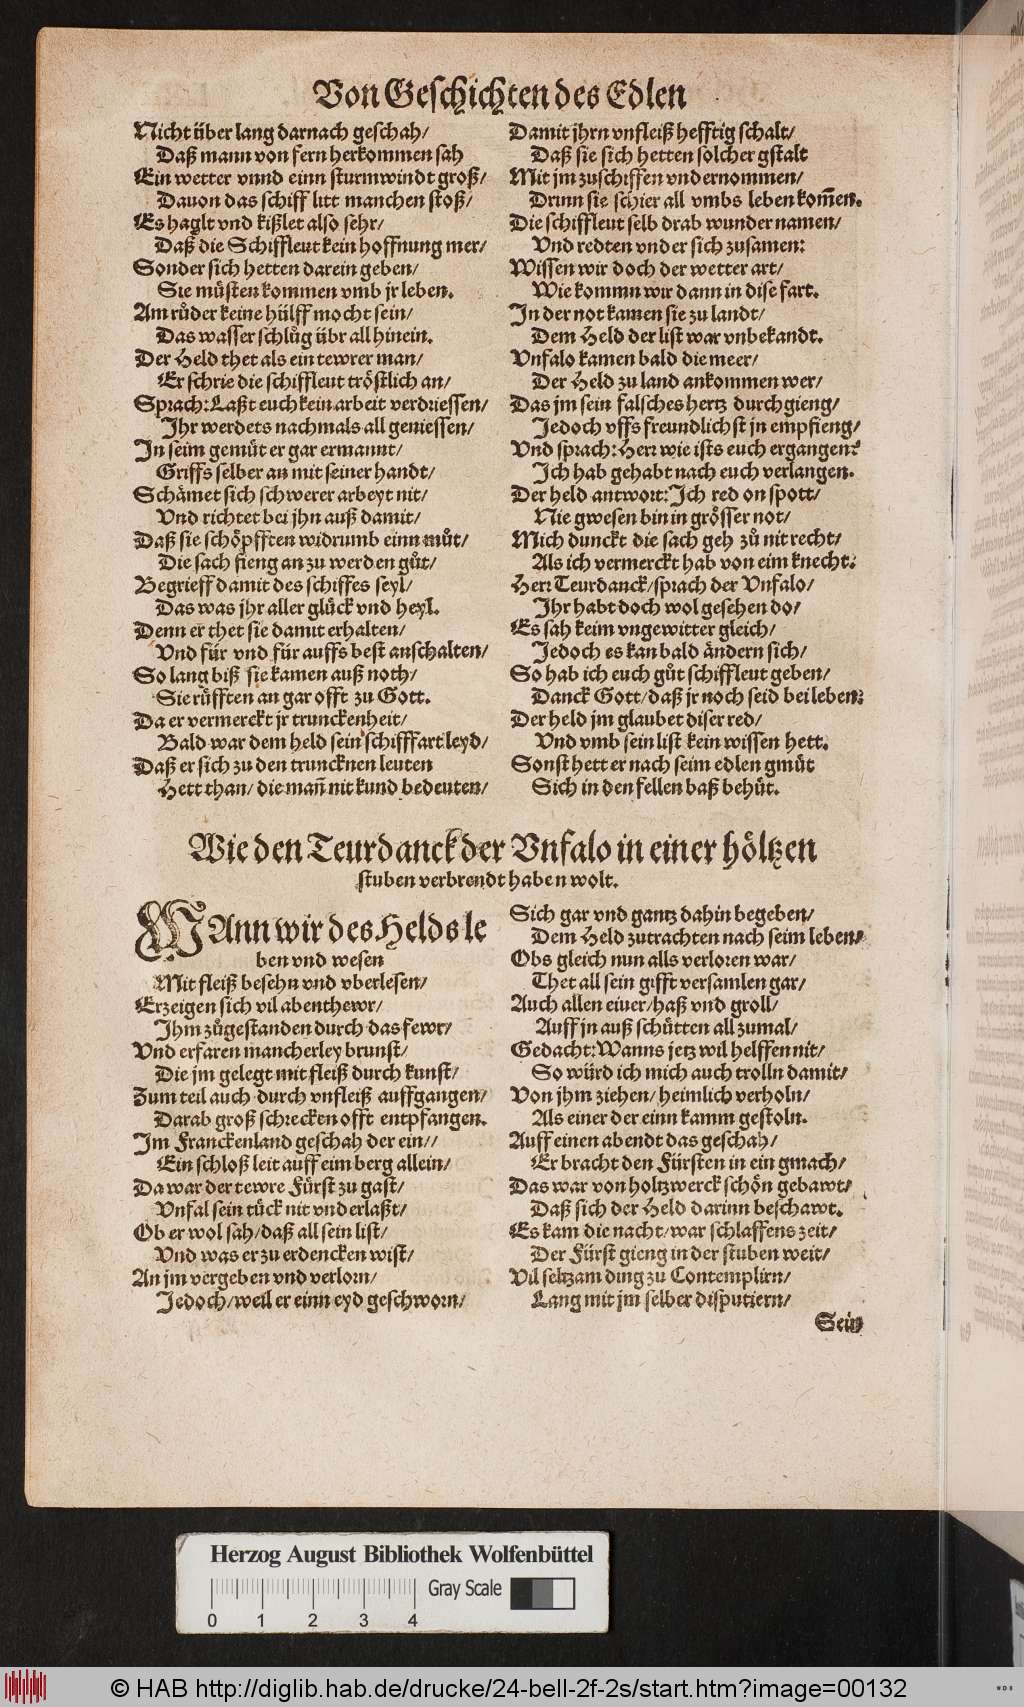 Von Geschichten des Edlen
Nicht über lang darnach geschah/
Daß mann von fern herkommen sah
Ein wetter vnnd einn sturmwindt groß/
Dauon das schiff litt manchen stoß/
Es haglt vnd kißlet also sehr/
Daß die Schiffleut kein hoffnung mer/
Sonder sich hetten darein geben/
Sie müsten kommen vmb jr leben.
Am růder keine hülff mocht sein/
Das wasser schlůg übr all hinein.
Der Held thet als ein tewrer man/
Er schrie die schiffleut tröstlich an/
Sprach: Laßt euch kein arbeit verdriessen/
Ihr werdets nachmals all geniessen/
In seim gemüt er gar ermannt/
Griffs selber an mit seiner handt/
Schämet sich schwerer arbeyt nit/
Vnd richtet bei jhn auß damit/
Daß sie schöpfften widrumb einn můt/
Die sach fieng an zu werden gůt/
Begrieff damit des schiffes seyl/
Das was jhr aller glück vnd heyl.
Denn er thet sie damit erhalten/
Vnd für vnd für auffs best anschalten/
So lang biß sie kamen auß noth/
Sie rüfften an gar offt zu Gott.
Da er vermerckt jr trunckenheit/
Bald war dem held sein schifffart leyd/
Daß er sich zu den truncknen leuten
Hett than/ die mañ nit kund bedeuten/
Damit jhrn vnfleiß hefftig schalt/
Daß sie sich hetten solcher gstalt
Mit jm zuschiffen vndernommen/
Drinn sie schier all vmbs leben kom̃en.
Die schiffleut selb drab wunder namen/
Vnd redten vnder sich zusamen:
Wissen wir doch der wetter art/
Wie kommn wir dann in dise fart.
In der not kamen sie zu landt/
Dem Held der list war vnbekandt.
Vnfalo kamen bald die meer/
Der Held zu land ankommen wer/
Das jm sein falsches hertz durchgieng/
Jedoch vffs freundlichst jn empfieng/
Vnd sprach: Herr wie ists euch ergangen?
Ich hab gehabt nach euch verlangen.
Der held antwort: Ich red on spott/
Nie gwesen bin in grösser not/
Mich dunckt die sach geh zů nit recht/
Als ich vermerckt hab von eim knecht.
Herr Teurdanck/ sprach der Vnfalo/
Ihr habt doch wol gesehen do/
Es sah keim vngewitter gleich/
Jedoch es kan bald ändern sich/
So hab ich euch gůt schiffleut geben/
Danck Gott/ daß jr noch seid bei leben.
Der held jm glaubet diser red/
Vnd vmb sein list kein wissen hett.
Sonst hett er nach seim edlen gmüt
Sich in den fellen baß behüt.
Wie den Teurdanck der Vnfalo in einer höltzen
stuben verbrendt haben wolt.
WAnn wir des Helds le
ben vnd wesen
Mit fleiß besehn vnd vberlesen/
Erzeigen sich vil abenthewr/
Ihm zůgestanden durch das fewr/
Vnd erfaren mancherley brunst/
Die jm gelegt mit fleiß durch kunst/
Zum teil auch durch vnfleiß auffgangen/
Darab groß schrecken offt entpfangen.
Im Franckenland geschah der ein//
Ein schloß leit auff eim berg allein/
Da war der tewre Fürst zu gast/
Vnfal sein tück nit vnderlaßt/
Ob er wol sah/ daß all sein list/
Vnd was er zu erdencken wist/
An jm vergeben vnd verlorn/
Jedoch/ weil er einn eyd geschworn/
Sich gar vnd gantz dahin begeben/
Dem Held zutrachten nach seim leben/
Obs gleich nun alls verloren war/
Thet all sein gifft versamlen gar/
Auch allen eiuer/ haß vnd groll/
Auff jn auß schütten all zumal/
Gedacht: Wanns jetz wil helffen nit/
So würd ich mich auch trolln damit/
Von jhm ziehen/ heimlich verholn/
Als einer der einn kamm gestoln.
Auff einen abendt das geschah/
Er bracht den Fürsten in ein gmach/
Das war von holtzwerck schön gebawt/
Daß sich der Held darinn beschawt.
Es kam die nacht/ war schlaffens zeit/
Der Fürst gieng in der stuben weit/
Vil seltzam ding zu Contemplirn/
Lang mit jm selber disputiern/
Sein
Herzog August Bibliothek Wolfenbüttel
Gray Scale
0 1 2 3 4
© HAB http://diglib.hab.de/drucke/24-bell-2f-2s/start.htm?image=00132